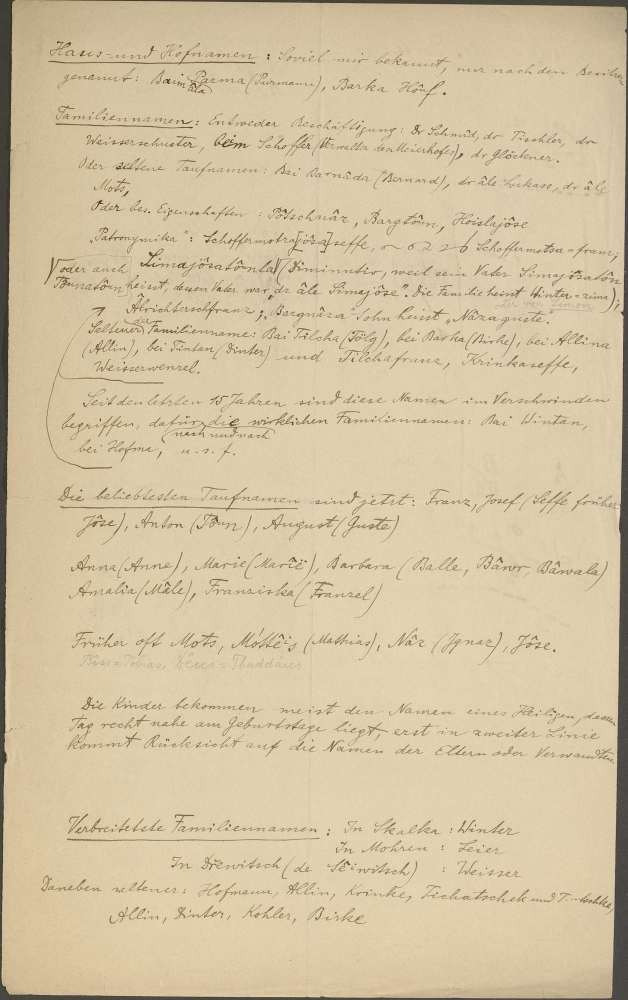 Haus- und Hofnamen : Soviel mir bekannt, nur nach dem Besitzer
genannt: Baim Parma (Purmann), Barka Hôuf.
Familiennamen: Entweder Beschäftigung: Dr Schmid, dr Tischler, dr
Weisserschuster, beim Schoffer (Verwalter des Meierhofes), dr Glöckener.
Oder seltene Taufnamen: Bai Barnàda (Bernard), dr äle Lukase, dr äle
Mots,
Oder bes. Eigenschaften : Bargtôun, Hoislajôse
"Patronymika": Schoffermotzajôsaseffe, Schoffermotza-franz,
oder auch Simajôsatônla (Diminutiv, weil sein Vater Simajôsatôn
heisst, dessen Vater war "dr äle Simajôse". Die Familie heisst Winter = Sima);
franz, "Bargnàza" sohn heisst "Nàzaguste".
Seltener Familienname: Bai Tilcha (Tölg), bei Barka (Birke), bei Allina
(Allin), bei Tintan (Dinter) und Tilchafranz, Krinkaseffe,
Weisserwenzel.
Seit den letzten 15 Jahren sind diese Namen im Verschwinden
begriffen, dafür die wirklichen Familiennamen: Bai Wintan,
nach und nach
bei Hofme, u. s. f.
Die beliebtesten Taufnamen sind jetzt: Franz, Josef (Seffe früher
Jôse), Anton (Tôun), August (Guste)
Anna (Anne), Marie (Marîë), Barbara (Balle, Bâwr, Bâwala)
Amalia (Mâle), Franziska (Franzel)
Früher oft Mots, Môttêis (Mathias), Nâz (Ignaz), Jôse.
Tobias, Thaddäus
Die Kinder bekommen meist den Namen eines Heiligen, dessen
Tag recht nahe am Geburtstage liegt, erst in zweiter Linie
kommt Rücksicht auf die Namen der Eltern oder Verwandten
Verbreitetste Familiennamen : In Skalka : Winter
In Mohren : Leier
In Drewitsch (de Sêiwitsch) : Weisser
Daneben seltener: Hofmann, Allin, Krinke, Tichatschek und
Allin, Dinter, Kohler, Birke